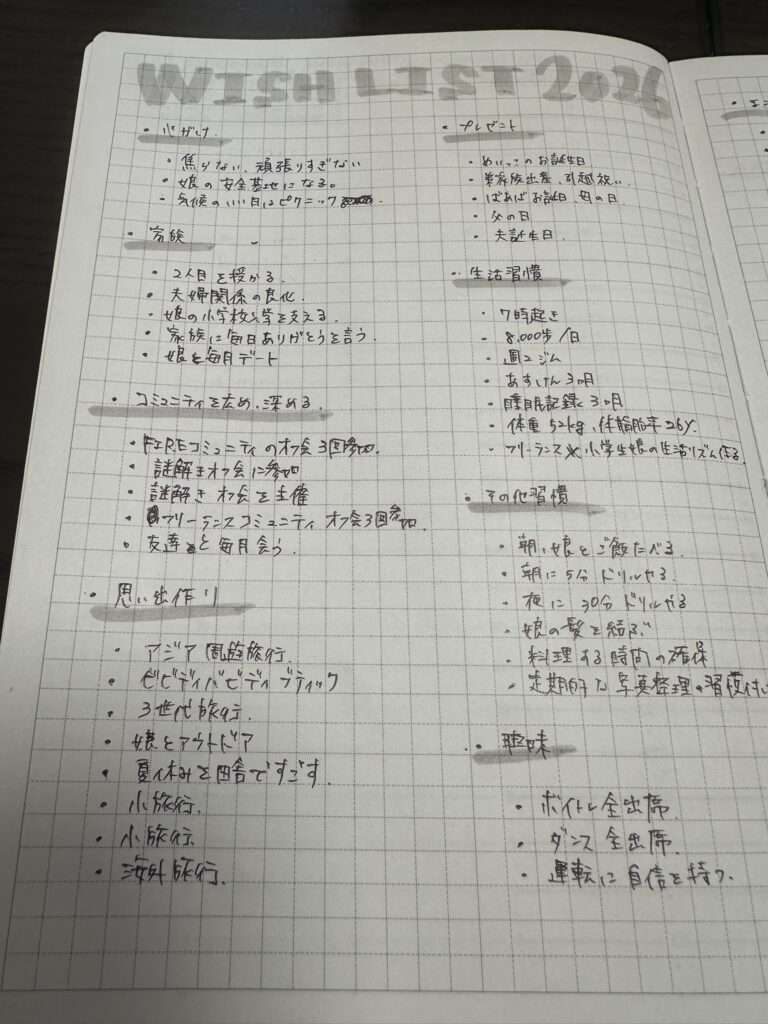 WISH LIST 2026
・心がけ
・焦らない、頑張りすぎない
・娘の安全基地になる。
・気候のいい日はピクニック
・家族
・2人目を授かる.
・夫婦関係の良化.
・娘の小学校入学を支える.
・家族に毎日ありがとうを言う.
・娘と毎月デート
・コミュニティを広め、深める.
・FIREコミュニティのオフ会3回参加.
・謎解きオフ会に参加
・謎解き オフ会を主催
・フリーランスコミュニティ オフ会3回参加.
・友達と毎月会う.
・思い出作り
・アジア周遊旅行.
・ビビディバビディブティック
・3世代旅行.
・娘とアウトドア
・夏休みを田舎ですごす.
・小旅行.
・小旅行.
・海外旅行.
・プレゼント
・めいっこのお誕生日
・出産、引越祝い.
・ばあばお誕生日、母の日
・父の日
・夫誕生日.
・生活習慣
・7時起き
・8,000歩/日
・週2ジム
・あすけん3ヶ月
・睡眠記録 3ヶ月
・体重52kg、体脂肪率26%
・フリーランス×小学生娘の生活リズム作る.
・その他習慣
・朝、娘とご飯たべる.
・朝に5分ドリルやる.
・夜に30分ドリルやる
・娘の髪を結ぶ
・料理する時間の確保
・定期的な写真整理の習慣付け
・趣味
・ボイトレ全出席.
・ダンス全出席.
・運転に自信を持つ.